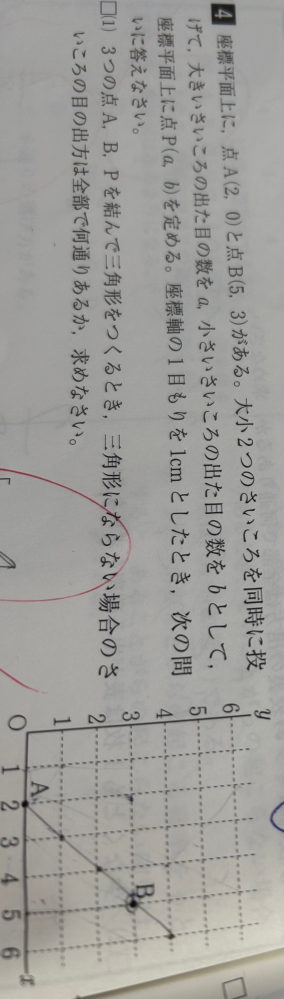 4 座標平面上に，点A(2，0)と点B(5，3)がある。大小2つのさいころを同時に投
げて，大きいさいころの出た目の数をa，小さいさいころの出た目の数をbとして，
座標平面上に点P(a，b)を定める。座標軸の1目もりを1cmとしたとき，次の問
いに答えなさい。
□(1) 3つの点A，B，Pを結んで三角形をつくるとき，三角形にならない場合のさ
いころの目の出方は全部で何通りあるか，求めなさい。
y
6
5
4
3
2
1
O
A
B
1 2 3 4 5 6 x